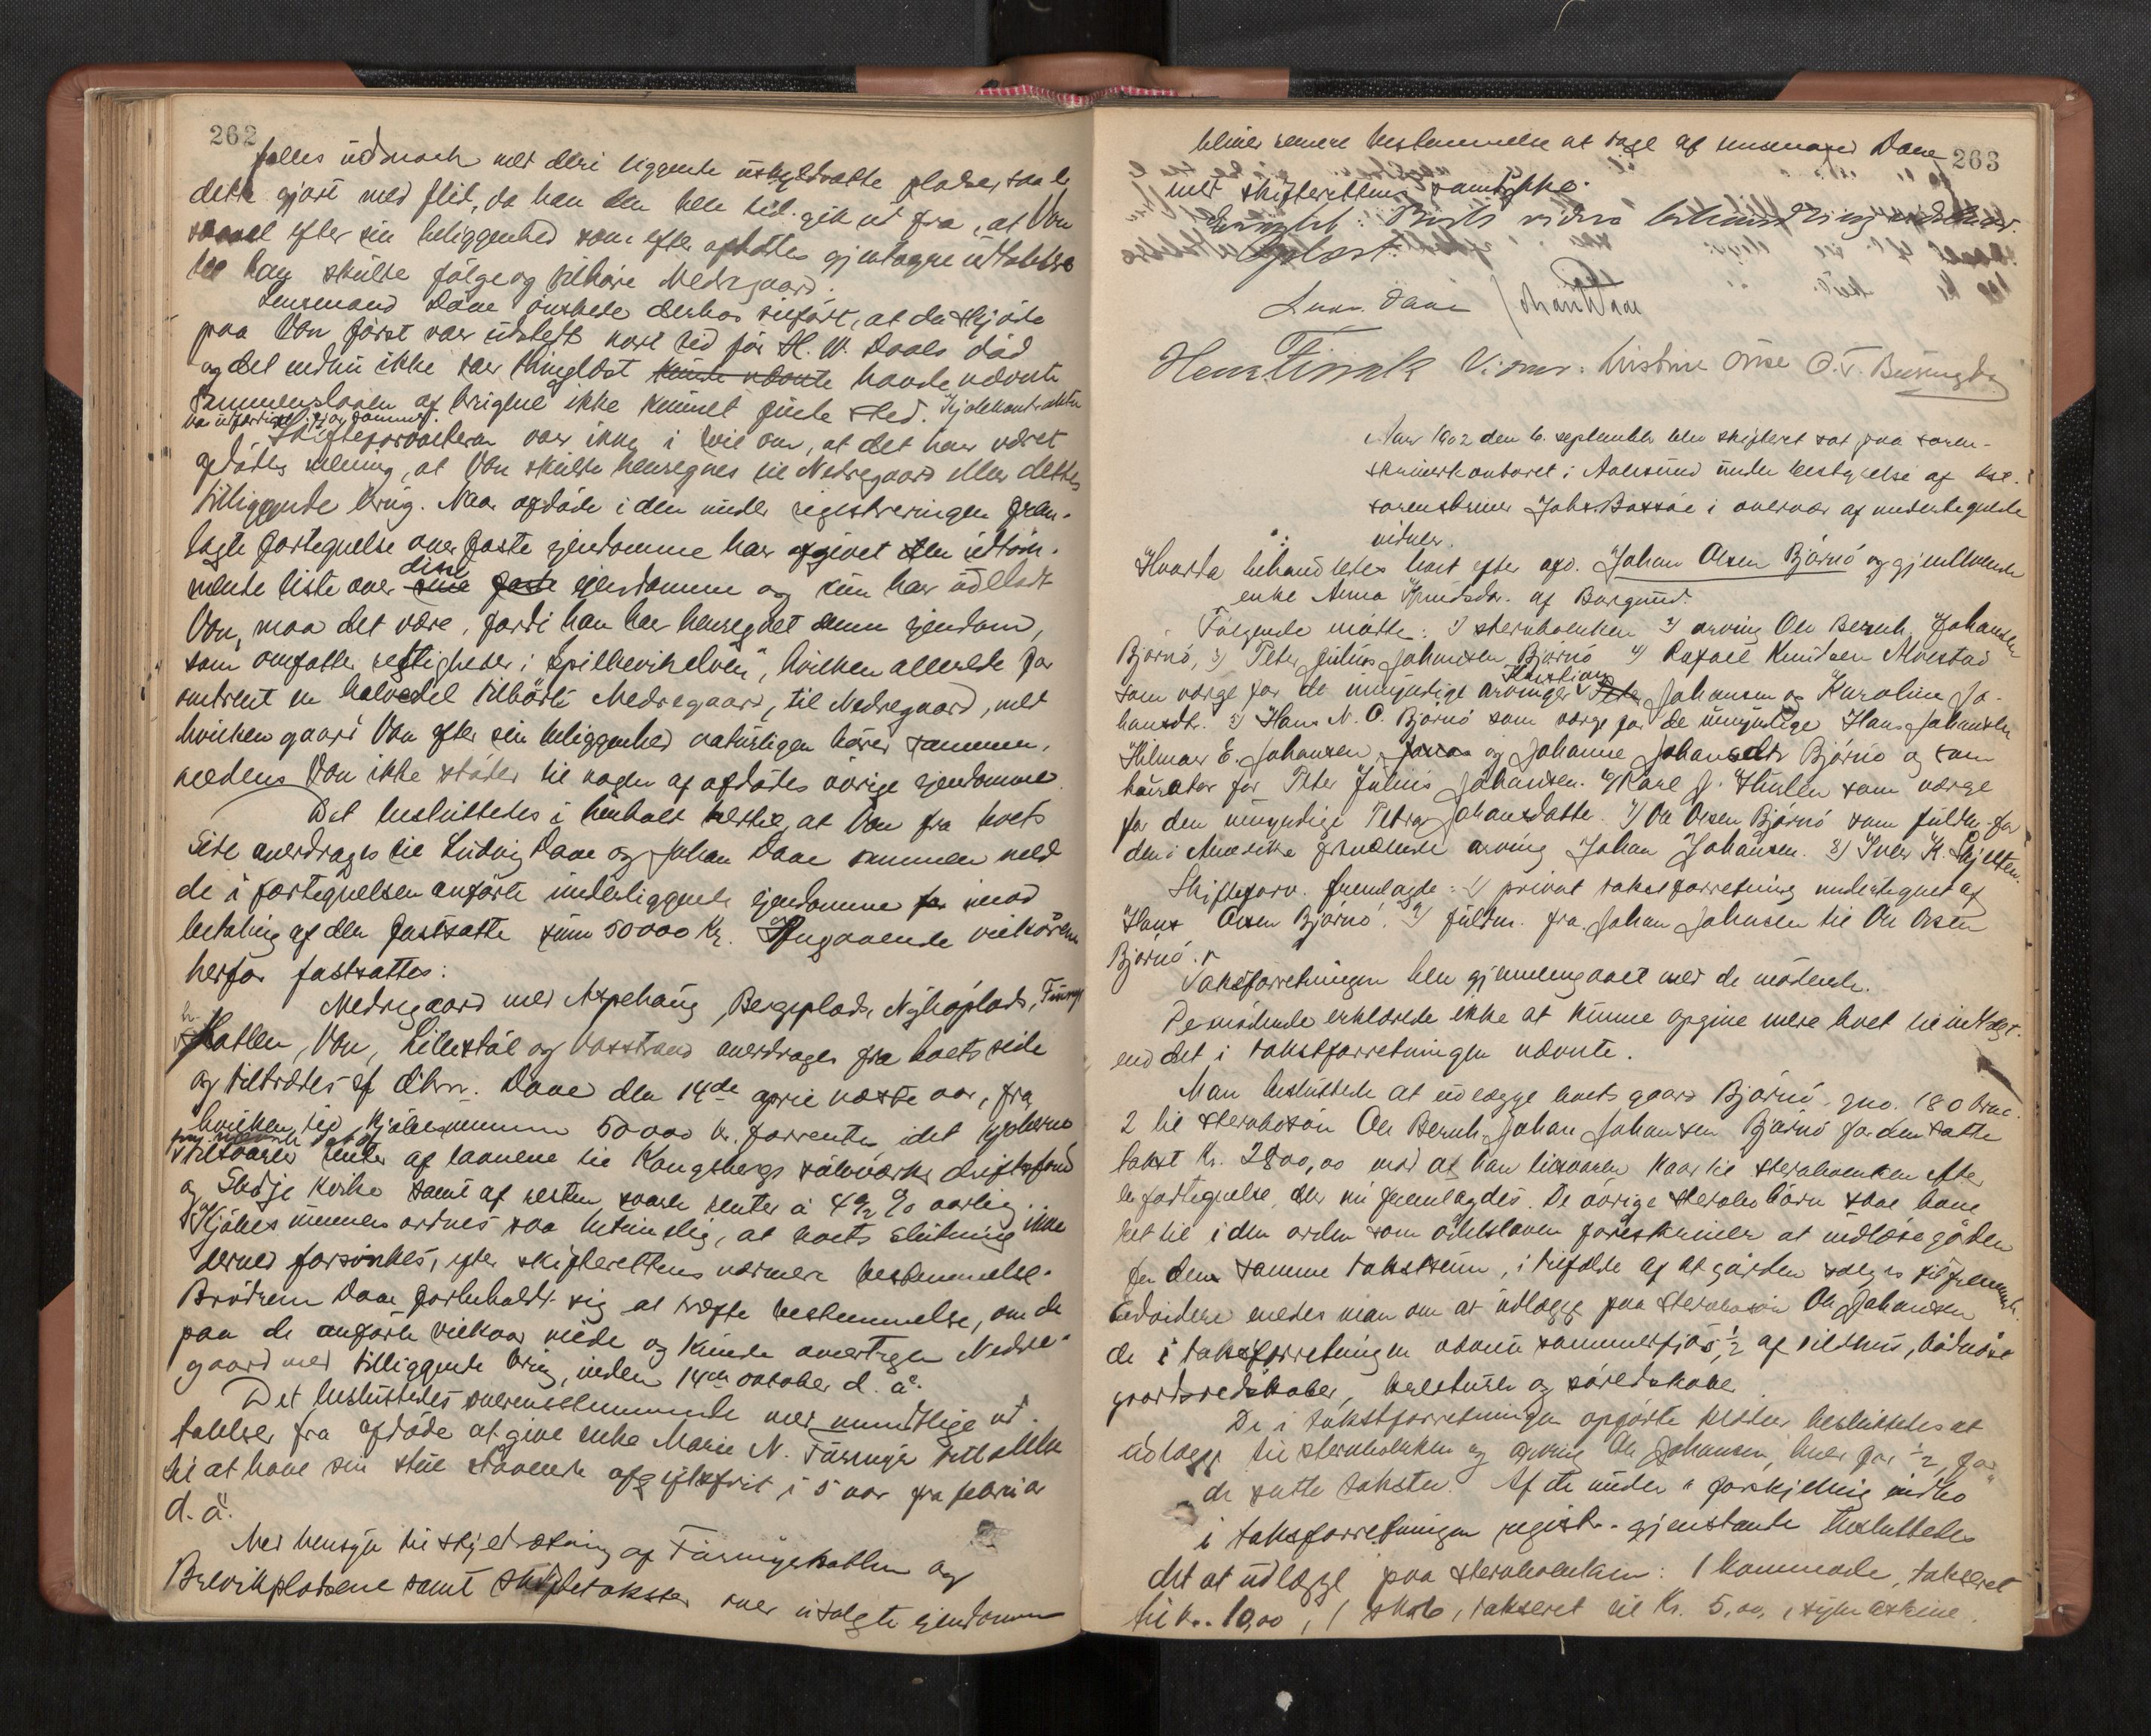 262
fælles udmark med deri liggende uskyldsatte pladse, saa er
dette gjort med flid, da han den hele tid gik ud fra, at Von
saavel efter sin beliggenhed som efter afdødes gjentagne udtalelser
skulde følge og tilhøre Nedregaard.
Lensmand Daae ønskede derhos tilført, at da skjøde
paa Von først var udstedt kort tid før H. W. Daaes død
og det endnu ikke var thinglæst kunde nævnte havde nævnte
sammenslaaen af brugene ikke kunnet finde sted. Kjøbekontrakten
Skifteforvalteren var ikke i tvil om, at det har været
afdødes mening, at Von skulde henregnes til Nedregaard eller dettes
tilliggende brug. Naar afdøde i den under registreringen frem-
lagte fortegnelse over faste eiendomme har afgivet den udtøm-
mende liste over sine disse faste eiendomme og kun har udeladt
Von, maa det være, fordi han har henregnet denne eiendom,
som omfatter rettigheder i "Spillkevikelven", hvilken allerede for
omtrent en halvedel tilhørte Nedregaard, til Nedregaard, med
hvilken gaard Von efter sin beliggenhed naturligen hører sammen,
medens Von ikke støder til nogen af afdødes øvrige eiendomme.
Det besluttedes i henhold hertil, at Von fra boets
side overdrages til Ludvig Daae og Johan Daae sammen med
de i fortegnelsen anførte underliggende eiendomme for imod
betaling af den fastsatte sum 50000 Kr. Angaaende vilkårene
herfor fastsattes:
Nedregaard med Aspehaug, Bergeplads, Nyhøplads,
Hatlen, Von, Lillestøl og Vasstrand overdrages fra boets side
og tiltrædes af dhrr. Daae den 14de april næste aar, fra
hvilken tid kjøbesummen 50000 kr. forrentes idet kjøberne
tilsvarer renter af laanene til Kongsbergs sølvværks driftsfond
og Skodje kirke samt af resten svare renter à 4½ % aarlig.
Kjøbesummen ordnes saa betimelig, at boets slutning ikke
derved forsinkes, efter skifterettens nærmere bestemmelse.
Brødrene Daae forbeholdt sig at træffe bestemmelse, om de
paa de anførte vilkaar vilde og kunde overtage Nedre-
gaard med tilliggende brug, inden 14de oktober d. å.
Det besluttedes overensstemmende med mundtlige ud-
talelser fra afdøde at give enke Marie N. Furmyr tilladelse
til at have sin stue staaende afgiftsfrit i 5 aar fra februar
d. å.
Med hensyn til skyldsætning af Furmyrhatlen og
Brevikpladsene samt skiftetakster over usolgte eiendomme
263
bliver senere bestemmelse at tage af lensmand Daae
med skifterettens samtykke.
Eragtet: Boets videre behandling udsættes.
Oplæst.
Ludv. Daae Johan Daae
Hans Finak Vidner: Kristine Orse O. T. Bueungdy
Aar 1902 den 6. september blev skifteret sat paa soren-
skriverkontoret i Aalesund under bestyrelse af kst.
sorenskriver Johs. Bassøe i overvær af undertegnede
vidner.
Hvorda behandledes boet efter afd. Johan Olsen Bjørnø og gjenlevende
enke Anna Knudsdr. af Borgund.
Følgende mødte: 1) sterboenken 2) arving Ole Bernh. Johansen
Bjørnø, 3) Peter Julius Johansen Bjørnø 4) Rafael Knudsen Alvestad
som værge for de umyndige arvinger Peter Kristian Johansen og Karoline Jo-
hansdr. 5) Hans N. O. Bjørnø som værge for de umyndige Hans Johansen
Hilmar E. Johansen, Jonas og Johanne Johansdtr Bjørnø og som
kurator for Peter Julius Johansen. 6) Karl J. Hulen som værge
for den umyndige Petra Johansdatter. 7) Ole Olsen Bjørnø som fuldm. for
den i Amerika fraværende arving Johan Johansen. 8) Iver K. Skjelten.
Skifteforv. fremlagde: 1) privat takstforretning undertegnet af
Hans Olsen Bjørnø. 2) fuldm. fra Johan Johnsen til Ole Olsen
Bjørnø.
Takstforretningen blev gjennemgaaet med de mødende.
De mødende erklærede ikke at kunne opgive mere boet til indtægt.
end det i takstforretningen nævnte.
Man besluttede at udlægge boets gaard Bjørnø gno. 180 brno.
2 til sterbosøn Ole Bernh. Johan Johansen Bjørnø for den satte
takst Kr. 2800,00 mod at han tilsvarer kaar til sterboenken efter
en fortegnelse, der nu fremlagdes. De øvrige sterbobørn skal have
ret til i den orden som odelsloven foreskriver at indløse gården
for den samme takstsum, i tilfælde af at gården sælges til fremmede.
Endvidere enedes man om at udlægge paa sterbosøn Ole Johansen
de i takstforretningen nævnte sommerfjøs, ½ af sildhus, bådnøst
gaardsredskaber, kreaturer og søredskaber.
De i takstforretningen opførte kreaturer besluttedes at
udlægge til sterboenken og arving Ole Johansen, hver for ½, for
de satte takster. Af de under "forskjellig indbo"
i takstforretningen regist. gjenstande besluttedes
det at udlægge paa sterboenken: 1 kommode, takseret
til kr. 10,00, 1 skab, takseret til Kr. 5,00, 1 symaskine.